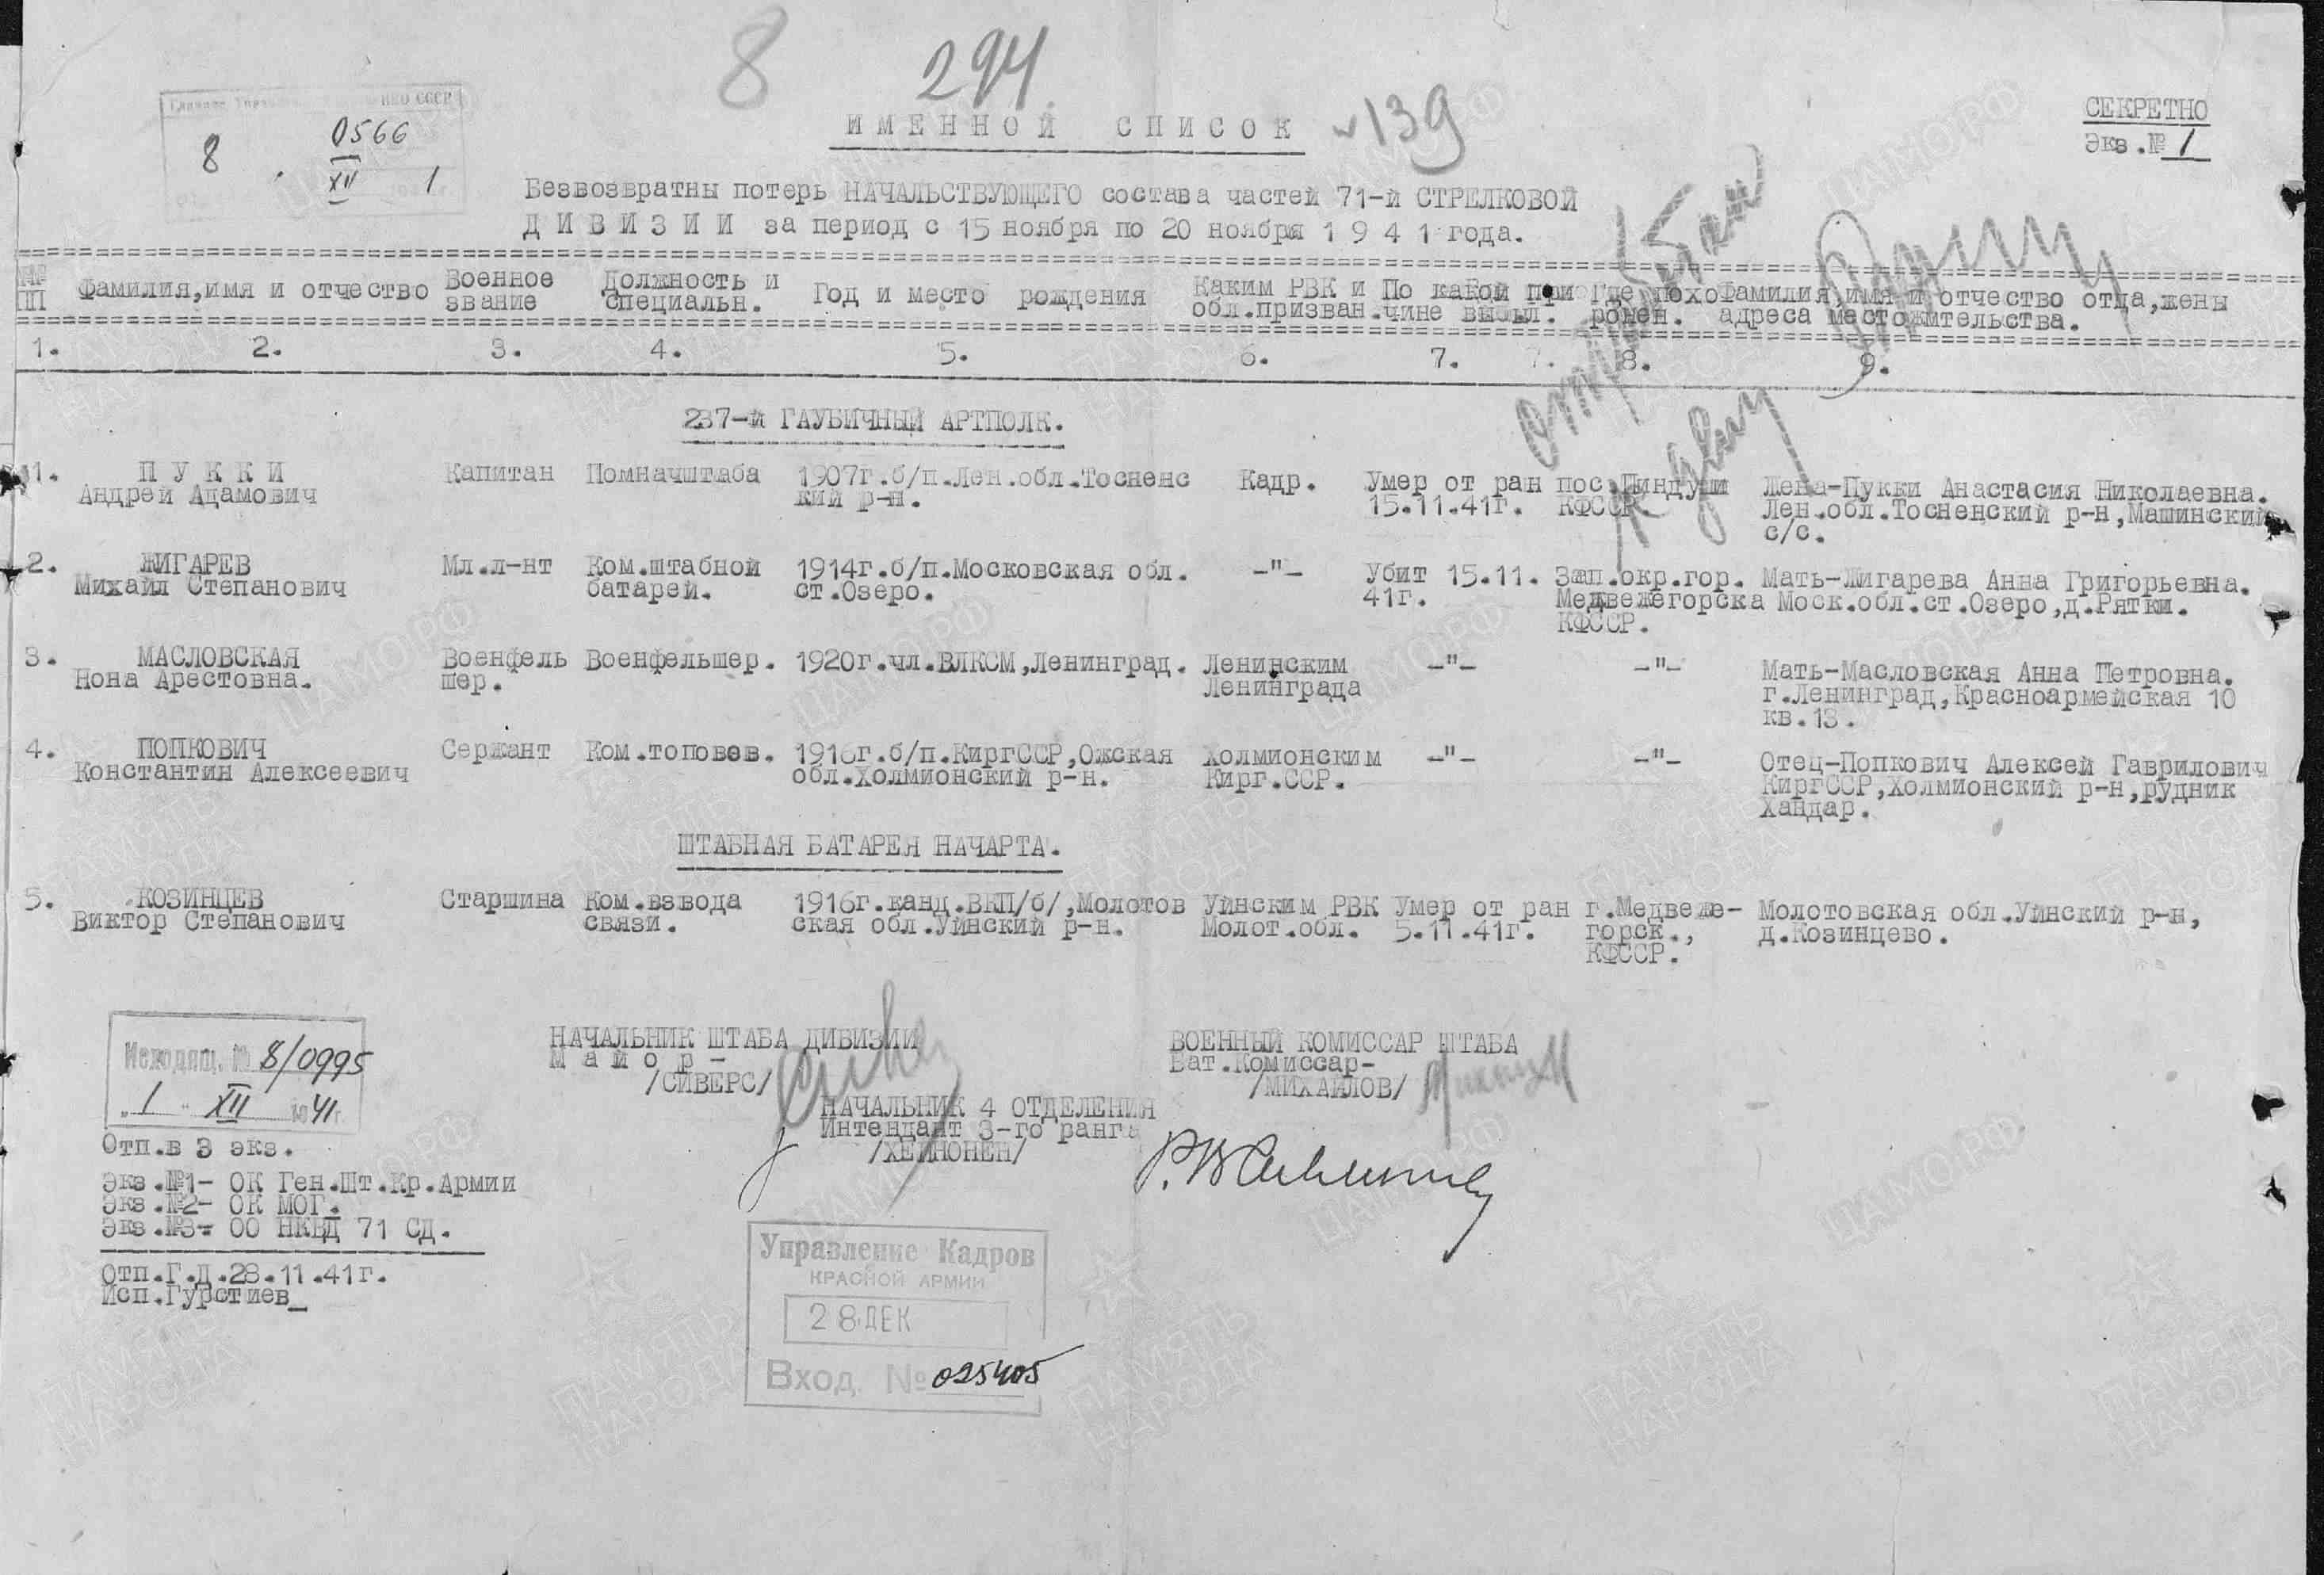 8 294
ИМЕННОЙ СПИСОК
139
СЕКРЕТНО
Экз.№ 1
НКО СССР
8 0566
XII 1
Безвозвратны потерь НАЧАЛЬСТВУЮЩЕГО состава частей 71-й СТРЕЛКОВОЙ
ДИВИЗИИ за период с 15 ноября по 20 ноября 1941 года.
№№ ПП
Фамилия,имя и отчество
Военное
звание
Должность и
специальн.
Год и место рождения
Каким РВК и
обл.призван.
По какой при
чине выбыл.
Где похо
ронен.
Фамилия,имя и отчество отца,жены
адреса местожительства.
1. 2. 3. 4. 5. 6. 7. 7. 8. 9.
237-й ГАУБИЧНЫЙ АРТПОЛК.
1. ПУККИ
Андрей Адамович
Капитан
Помначштаба
1907г.б/п.Лен.обл.Тосненс
кий р-н.
Кадр.
Умер от ран
15.11.41г.
пос.Пиндуши
КФССР
Жена-Пукки Анастасия Николаевна.
Лен.обл.Тосненский р-н,Машинский
с/с.
2. ЖИГАРЕВ
Михаил Степанович
Мл.л-нт
Ком.штабной
батарей.
1914г.б/п.Московская обл.
ст.Озеро.
-"-
Убит 15.11.
41г.
Зап.окр.гор.
Медвежегорска
КФССР.
Мать-Жигарева Анна Григорьевна.
Моск.обл.ст.Озеро,д.Рятки.
3. МАСЛОВСКАЯ
Нона Арестовна.
Военфель
шер.
Военфельшер.
1920г.чл.ВЛКСМ,Ленинград.
Ленинским
Ленинграда
-"-
-"-
Мать-Масловская Анна Петровна.
г.Ленинград,Красноармейская 10
кв.13.
4. ПОПКОВИЧ
Константин Алексеевич
Сержант
Ком.топовзв.
1916г.б/п.КиргССР,Ожская
обл.Холмионский р-н.
Холмионским
Кирг.ССР.
-"-
-"-
Отец-Попкович Алексей Гаврилович
КиргССР,Холмионский р-н,рудник
Хандар.
ШТАБНАЯ БАТАРЕЯ НАЧАРТА.
5. КОЗИНЦЕВ
Виктор Степанович
Старшина
Ком.взвода
связи.
1916г.канд.ВКП/б/,Молотов
ская обл.Уйнский р-н.
Уйнским РВК
Молот.обл.
Умер от ран
5.11.41г.
г.Медвеже-
горск.,
КФССР.
Молотовская обл.Уйнский р-н,
д.Козинцево.
НАЧАЛЬНИК ШТАБА ДИВИЗИИ
Майор-
/СИВЕРС/
ВОЕННЫЙ КОМИССАР ШТАБА
Бат.Комиссар-
/МИХАЙЛОВ/
НАЧАЛЬНИК 4 ОТДЕЛЕНИЯ
Интендант 3-го ранга
/ХЕЙНОНЕН/
Исходящ. № 8/0995
„1" XII 1941г.
Отп.в 3 экз.
Экз.№1- ОК Ген.Шт.Кр.Армии
Экз.№2- ОК МОГ.
Экз.№3- ОО НКВД 71 СД.
Отп.Г.Д.28.11.41г.
Исп.Гурстиев
Управление Кадров
КРАСНОЙ АРМИИ
28 ДЕК
Вход. № 025405
ПАМЯТЬ
НАРОДА
ЦАМО.РФ